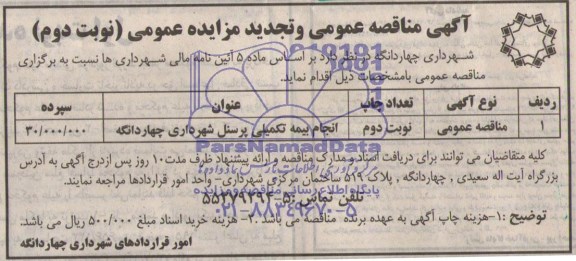 آگهی مناقصه عمومی وتجدید مزایده عمومی (نوبت دوم)
شهرداری چهاردانگه در نظر دارد بر اساس ماده ۵ آئین نامه مالی شهرداری ها نسبت به برگزاری
مناقصه عمومی بامشخصات ذیل اقدام نماید.
ردیف نوع آگهی تعداد چاپ عنوان سپرده
۱ مناقصه عمومی نوبت دوم انجام بیمه تکمیلی پرسنل شهرداری چهاردانگه ۳۰/۰۰۰/۰۰۰
ParsNamadData
کلیه متقاضیان می توانند برای دریافت اسناد و مدارک مناقصه و ارائه پیشنهاد ظرف مدت ۱۰ روز پس ازدرج آگهی به آدرس
بزرگراه آیت اله سعیدی , چهاردانگه , پلاک ۵۱۹ ساختمان مرکزی شهرداری- واحد امور قراردادها مراجعه نمایند.
پایگاه اطلاع رسانی مناقصه و مزایده
تلفن تماس :۵-۵۵۲۷۹۲۹۴
۰۲۱-۸۸۳۴۹۶۷۰-۵
توضیح :۱-هزینه چاپ آگهی به عهده برنده مناقصه می باشد .۲- هزینه خرید اسناد مبلغ ۵۰۰/۰۰۰ ریال می باشد.
امور قراردادهای شهرداری چهاردانگه